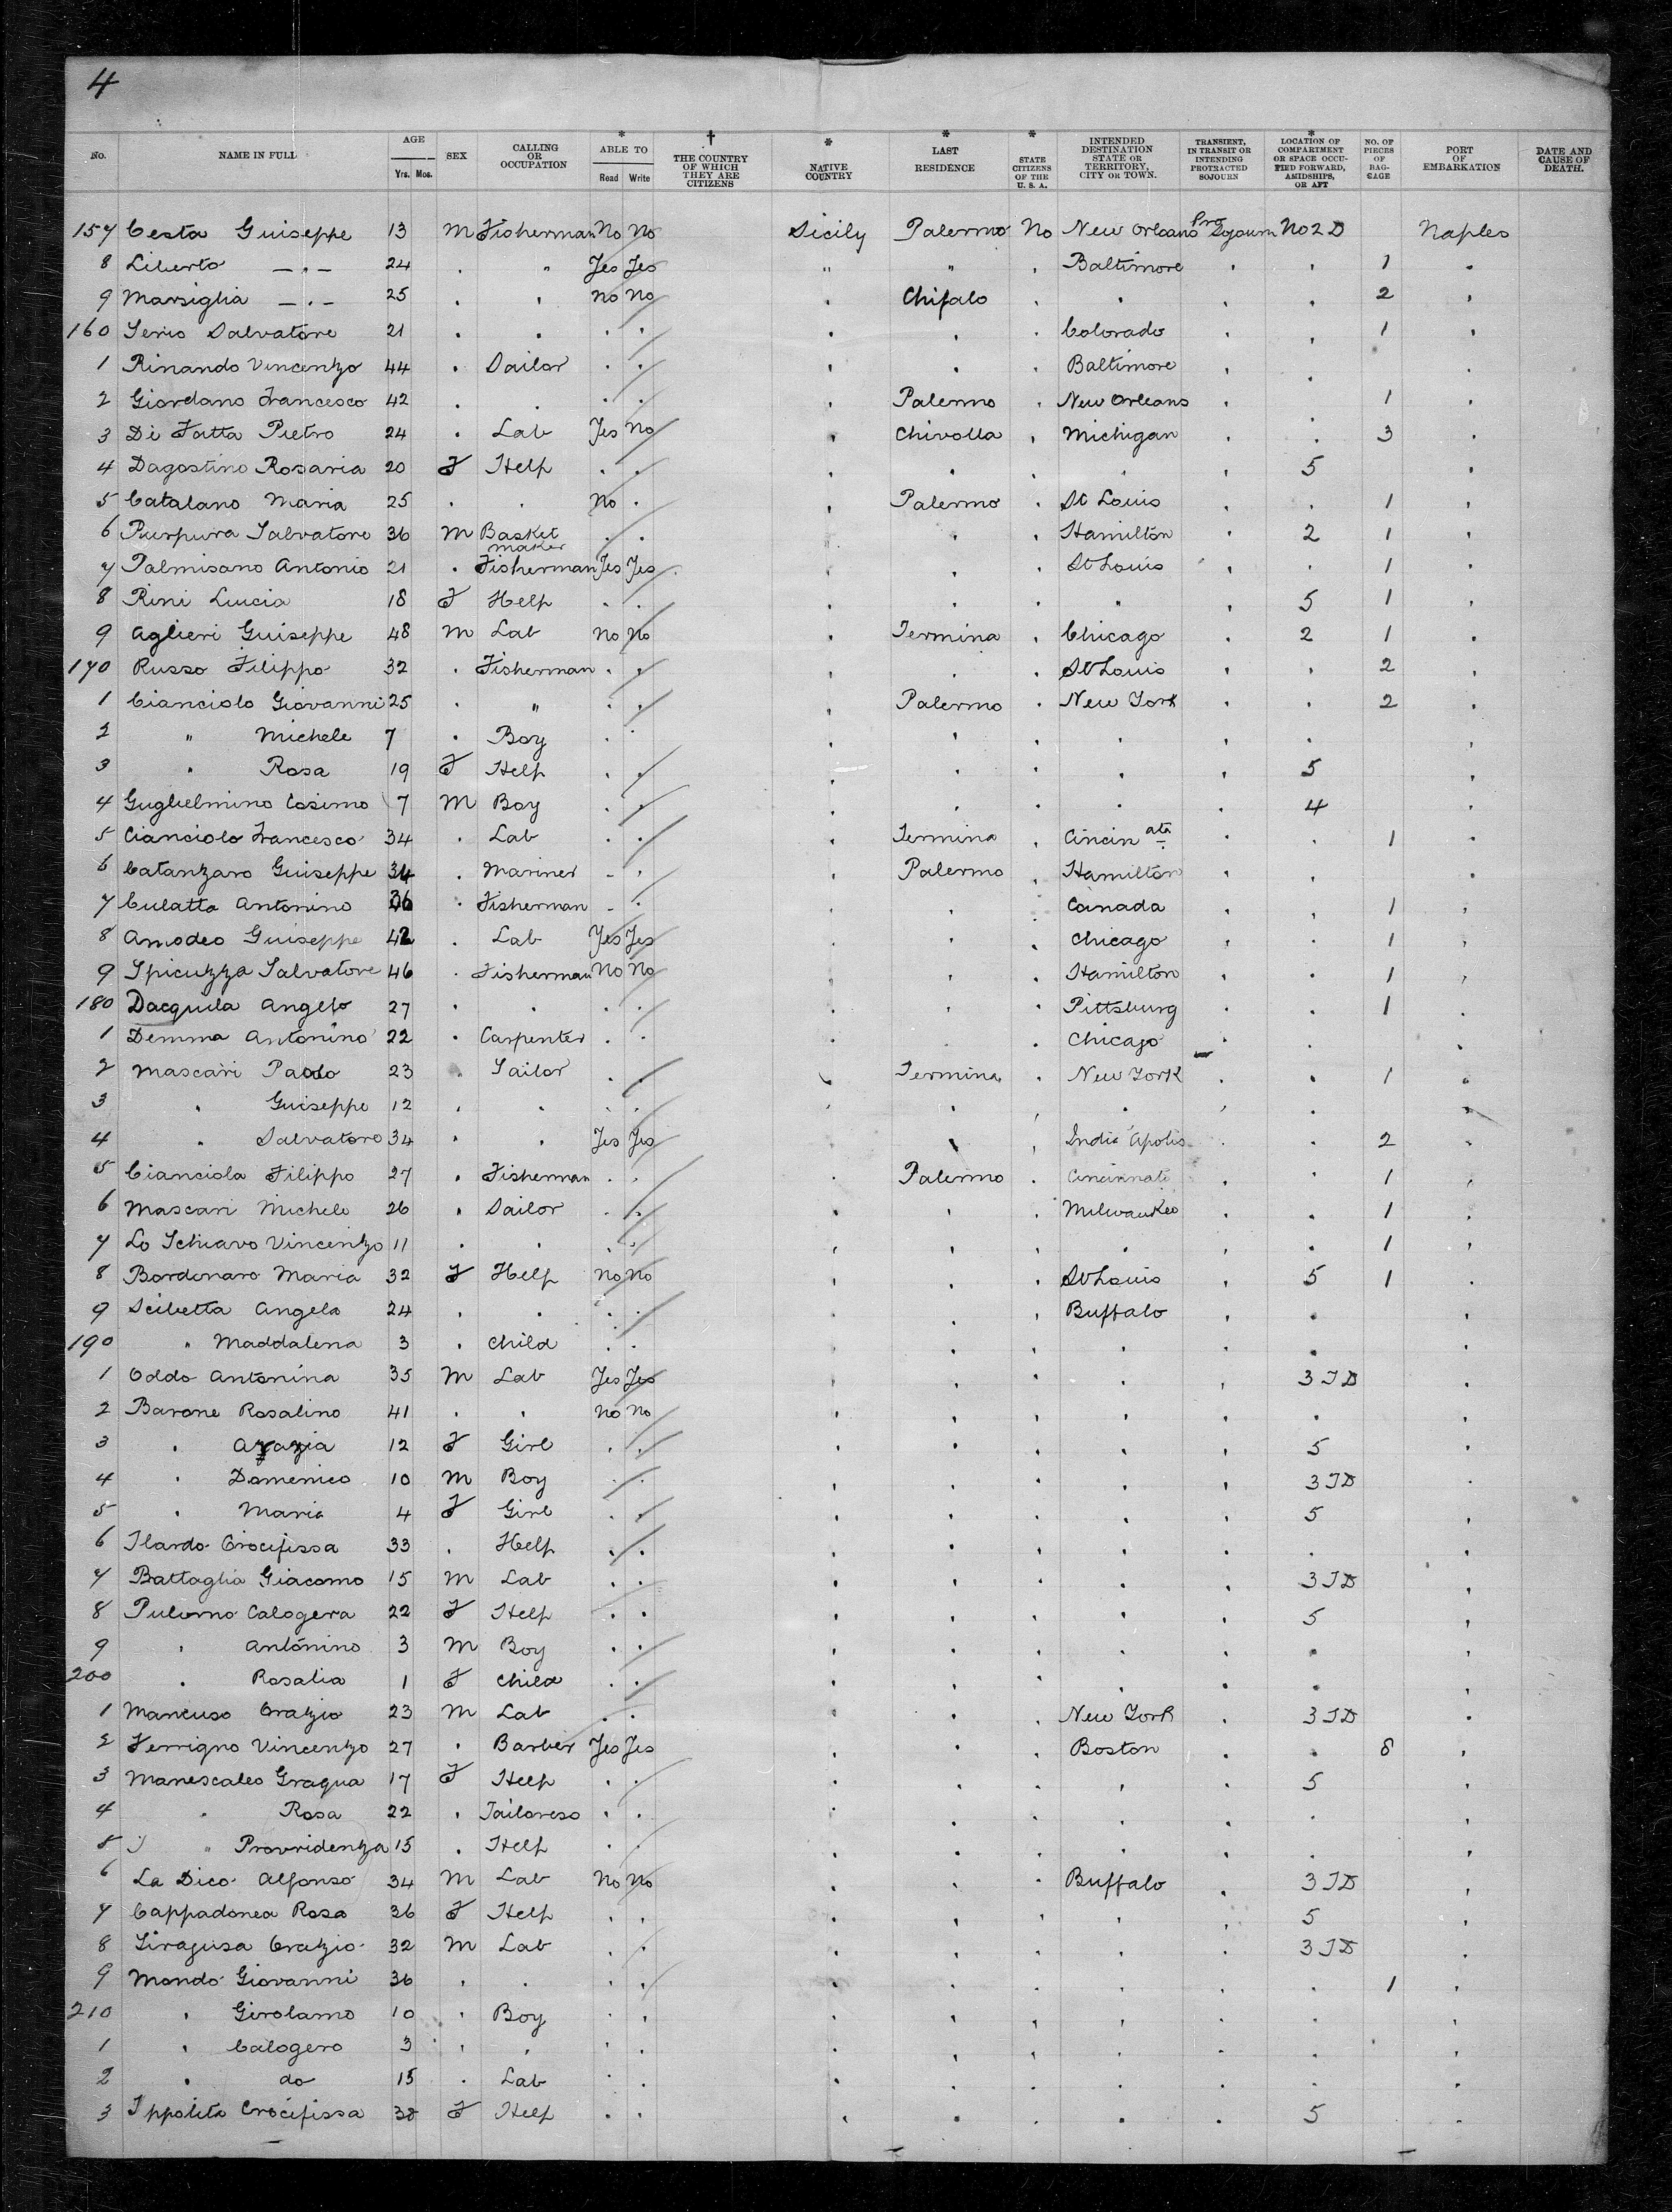 4
No. NAME IN FULL AGE Yrs. Mos. SEX CALLING OR OCCUPATION * ABLE TO Read Write † THE COUNTRY OF WHICH THEY ARE CITIZENS * NATIVE COUNTRY * LAST RESIDENCE * STATE CITIZENS OF THE U. S. A. INTENDED DESTINATION STATE OR TERRITORY, CITY OR TOWN. TRANSIENT, IN TRANSIT OR INTENDING PROTRACTED SOJOURN * LOCATION OF COMPARTMENT OR SPACE OCCUPIED FORWARD, AMIDSHIPS, OR AFT NO. OF PIECES OF BAGGAGE PORT OF EMBARKATION DATE AND CAUSE OF DEATH.
157 Cesta Guiseppe 13 M Fisherman No No Sicily Palermo No New Orleans Pro Sojourn No 2 D Naples
8 Liberto —"— 24 . " Yes Yes " " . Baltimore . . 1 .
9 Marsiglia —"— 25 . . No No . Chifalo . . . . 2 .
160 Serio Salvatore 21 . . . . . . . Colorado . . 1 .
1 Rinando Vincenzo 44 . Sailor . . . . . Baltimore . . .
2 Giordano Francesco 42 . . . . . Palermo . New Orleans . . 1 .
3 Di Fatta Pietro 24 . Lab Yes No . Chivolla . Michigan . . 3 .
4 Dagostino Rosaria 20 F Help . . . . . . . 5 .
5 Catalano Maria 25 . . No . . Palermo . St Louis . . 1 .
6 Purpura Salvatore 36 M Basket maker . . . . . Hamilton . 2 1 .
7 Palmisano Antonio 21 . Fisherman Yes Yes . . . St Louis . . 1 .
8 Rini Luucia 18 F Help . . . . . " . 5 1 .
9 Aglieri Guiseppe 48 M Lab No No . Termina . Chicago . 2 1 .
170 Russo Filippo 32 . Fisherman . . . . . St Louis . . 2 .
1 Cianciolo Giovanni 25 . " . . . Palermo . New York . . 2 .
2 " Michele 7 . Boy . . . . . . . . .
3 " Rosa 19 F Help . . . . . . . 5 .
4 Guglielmino Cosimo 7 M Boy . . . . . . . 4 .
5 Cianciolo Francesco 34 . Lab . . . Termina . Cincin ata . . 1 .
6 Catanzaro Guiseppe 34 . Mariner . . . Palermo . Hamilton . . .
7 Culatta Antonino 36 . Fisherman . . . . . Canada . . 1 .
8 Amodeo Guiseppe 42 . Lab Yes Yes . . . Chicago . . 1 .
9 Spicuzza Salvatore 46 . Fisherman No No . . . Hamilton . . 1 .
180 Dacquila Angelo 27 . . . . . . . Pittsburg . . 1 .
1 Demma Antonino 22 . Carpenter . . . . . Chicago . . .
2 Mascari Paolo 23 . Sailor . . . Termina . New York . . 1 .
3 " Guiseppe 12 . . . . . . . . . . .
4 " Salvatore 34 . . Yes Yes . . . India apolis . . 2 .
5 Cianciola Filippo 27 . Fisherman . . . Palermo . Cincinnati . . 1 .
6 Mascari Michele 26 . Sailor . . . . . Milwaukee . . 1 .
7 Lo Schiavo Vincenzo 11 . . . . . . . . . . 1 .
8 Bordenaro Maria 32 F Help No No . . . St Louis . 5 1 .
9 Scibetta Angela 24 . . . . . . . Buffalo . . .
190 " Maddalena 3 . Child . . . . . . . . .
1 Oddo Antonina 35 M Lab Yes Yes . . . . . 3 TD .
2 Barone Rosalino 41 . . No No . . . . . . .
3 " 12 F Girl . . . . . . . 5 .
4 " Domenico 10 M Boy . . . . . . . 3 TD .
5 " Maria 4 F Girl . . . . . . . 5 .
6 Ilardo Crocifissa 33 . Help . . . . . . . . .
7 Battaglia Giacomo 15 M Lab . . . . . . . 3 TD .
8 Pulomo Calogera 22 F Help . . . . . . . 5 .
9 " Antonino 3 M Boy . . . . . . . . .
200 " Rosalia 1 F Child . . . . . . . . .
1 Mancuso Orazio 23 M Lab . . . . . New York . 3 TD .
2 Ferrigno Vincenzo 27 . Barber Yes Yes . . . Boston . . 8 .
3 Manescaleo Gragua 17 F Help . . . . . . . 5 .
4 " Rosa 22 . Tailoress . . . . . . . . .
5 " Provridenza 15 . Help . . . . . . . . .
6 La Dico Alfonso 34 M Lab No No . . . Buffalo . 3 TD .
7 Cappadonea Rosa 36 F Help . . . . . . . 5 .
8 Siragusa Orazio 32 M Lab . . . . . . . 3 TD .
9 Mondo Giovanni 36 . . . . . . . . . . 1 .
210 " Girolamo 10 . Boy . . . . . . . . .
1 " Calogero 3 . . . . . . . . . . .
2 " do 15 . Lab . . . . . . . . .
3 Ippolito Crocifissa 38 F Help . . . . . . . 5 .